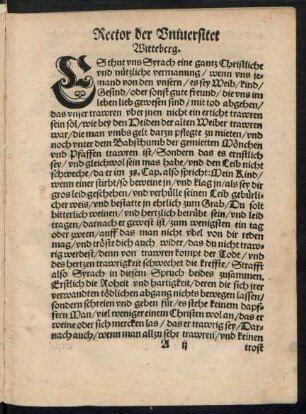 Rector der Vniuersitet
Witteberg.
ES thut vns Syrach eine gantz Christliche
vnd nützliche vermanung / wenn vns je-
mand von den vnsern / es sey Weib / kind /
Gesind / oder sonst gute freund / die vns im
leben lieb gewesen sind / mit tod abgehen /
das vnser trawren vber jnen nicht ein erticht trawren
sein sol / wie bey den Heiden der alten Weiber trawren
war / die man vmbs gelt darzu pflegte zu mieten / vnd
noch vnter dem Babsthumb der gemieten Mönchen
vnd Pfaffen trawren ist / Sondern das es ernstlich
sey / vnd gleichwol sein mas habe / vnd den Leib nicht
schweche / da er im 38. Cap. also spricht: Mein Kind /
wenn einer stirbt / so beweine jn / vnd klag jn / als sey dir
gros leid geschehen / vnd verhülle seinen Leib gebürli-
cher weis / vnd bestatte jn ehrlich zum Grab / Du solt
bitterlich weinen / vnd hertzlich betrübt sein / vnd leid
tragen / darnach er gewest ist / zum wenigsten ein tag
oder zween / auff das man nicht vbel von dir reden
mag / vnd tröste dich auch wider / das du nicht traw-
rig werdest / denn von trawren kompt der Todt / vnd
des hertzen trawrigkeit schwechet die kreffte / Strafft
also Syrach in diesem Spruch beides zusammen.
Erstlich die Roheit vnd hartigkeit / deren die sich jrer
verwandten tödlichen abgang nichts bewegen lassen /
sondern schreien vnd geben für / es stehe keinem dapf-
fern Man / viel weniger einem Christen wol an / das er
weine oder sich mercken las / das er trawrig sey / Dar-
nach auch / wenn man allzu sehr trawren / vnd keinen
A ij
trost